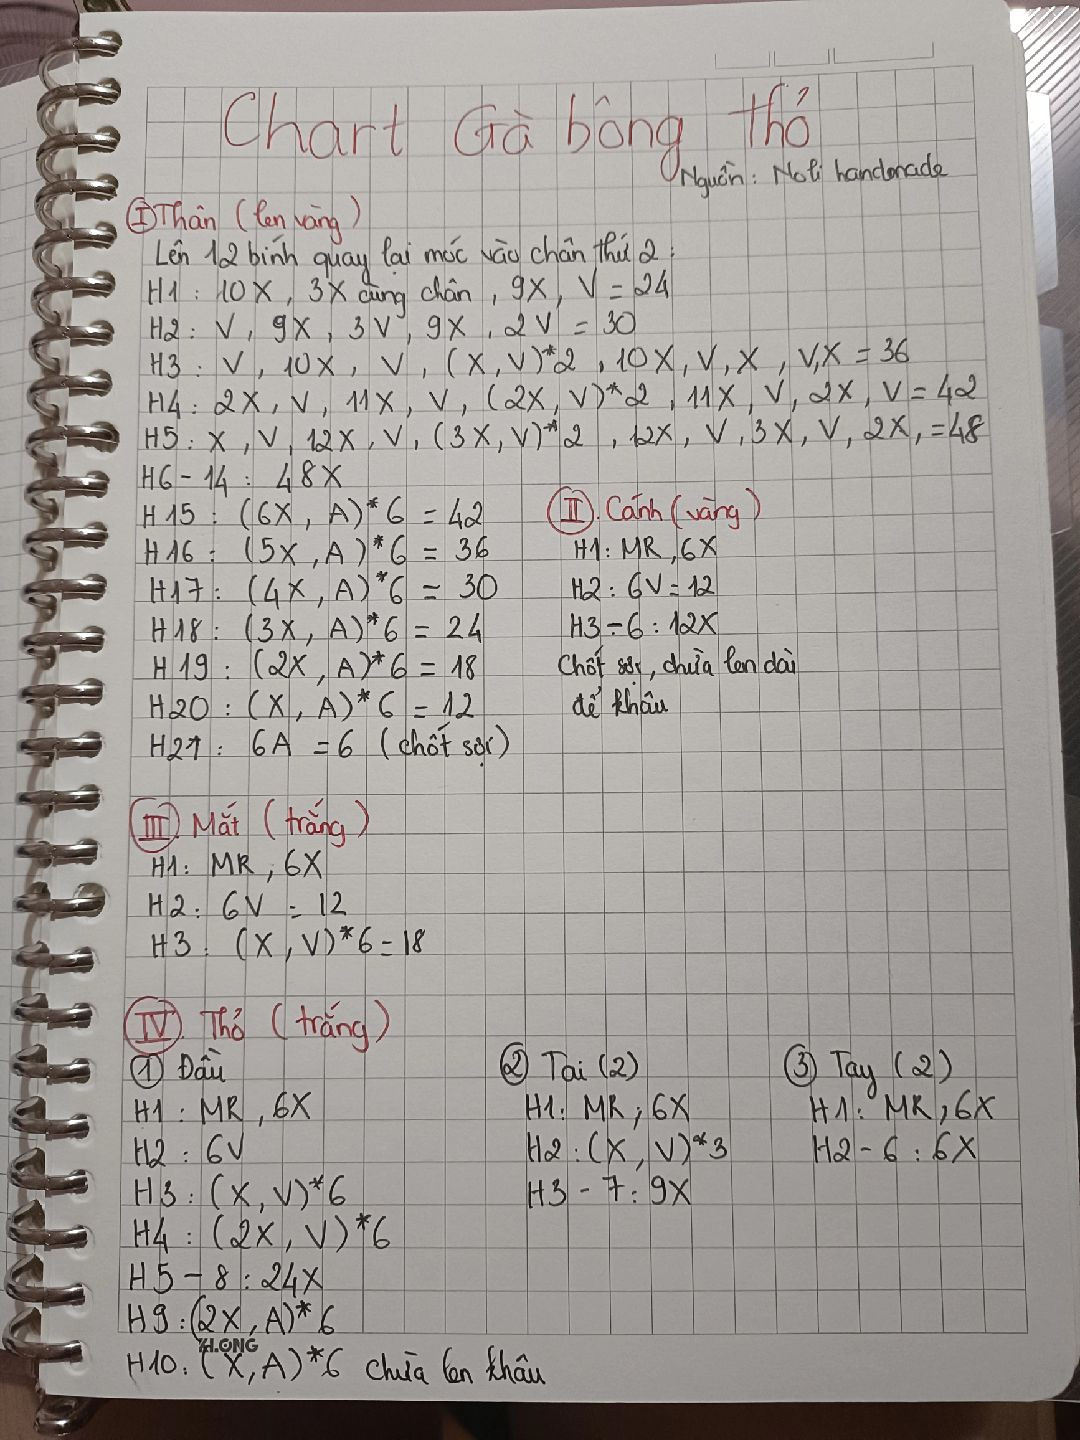 Chart Gà bông thỏ
Nguồn: Noli handmade
I Thân (len vàng)
Lên 12 bính quay lại móc vào chân thứ 2:
H1: 10X, 3X cùng chân, 9X, V = 24
H2: V, 9X, 3V, 9X, 2V = 30
H3: V, 10X, V, (X, V)*2, 10X, V, X, V, X = 36
H4: 2X, V, 11X, V, (2X, V)*2, 11X, V, 2X, V = 42
H5: X, V, 12X, V, (3X, V)*2, 12X, V, 3X, V, 2X, = 48
H6 - 14: 48X
H15: (6X, A)*6 = 42
H16: (5X, A)*6 = 36
H17: (4X, A)*6 = 30
H18: (3X, A)*6 = 24
H19: (2X, A)*6 = 18
H20: (X, A)*6 = 12
H21: 6A = 6 (chốt sợi)
II. Cánh (vàng)
H1: MR, 6X
H2: 6V = 12
H3 - 6: 12X
Chốt sợi, chừa len dài
để khâu
III. Mắt (trắng)
H1: MR, 6X
H2: 6V = 12
H3: (X, V)*6 = 18
IV. Thỏ (trắng)
1 Đầu
H1: MR, 6X
H2: 6V
H3: (X, V)*6
H4: (2X, V)*6
H5 - 8: 24X
H9: (2X, A)*6
H10: (X, A)*6 chừa len khâu
2 Tai (2)
H1: MR, 6X
H2: (X, V)*3
H3 - 7: 9X
3 Tay (2)
H1: MR, 6X
H2 - 6: 6X
KLONG